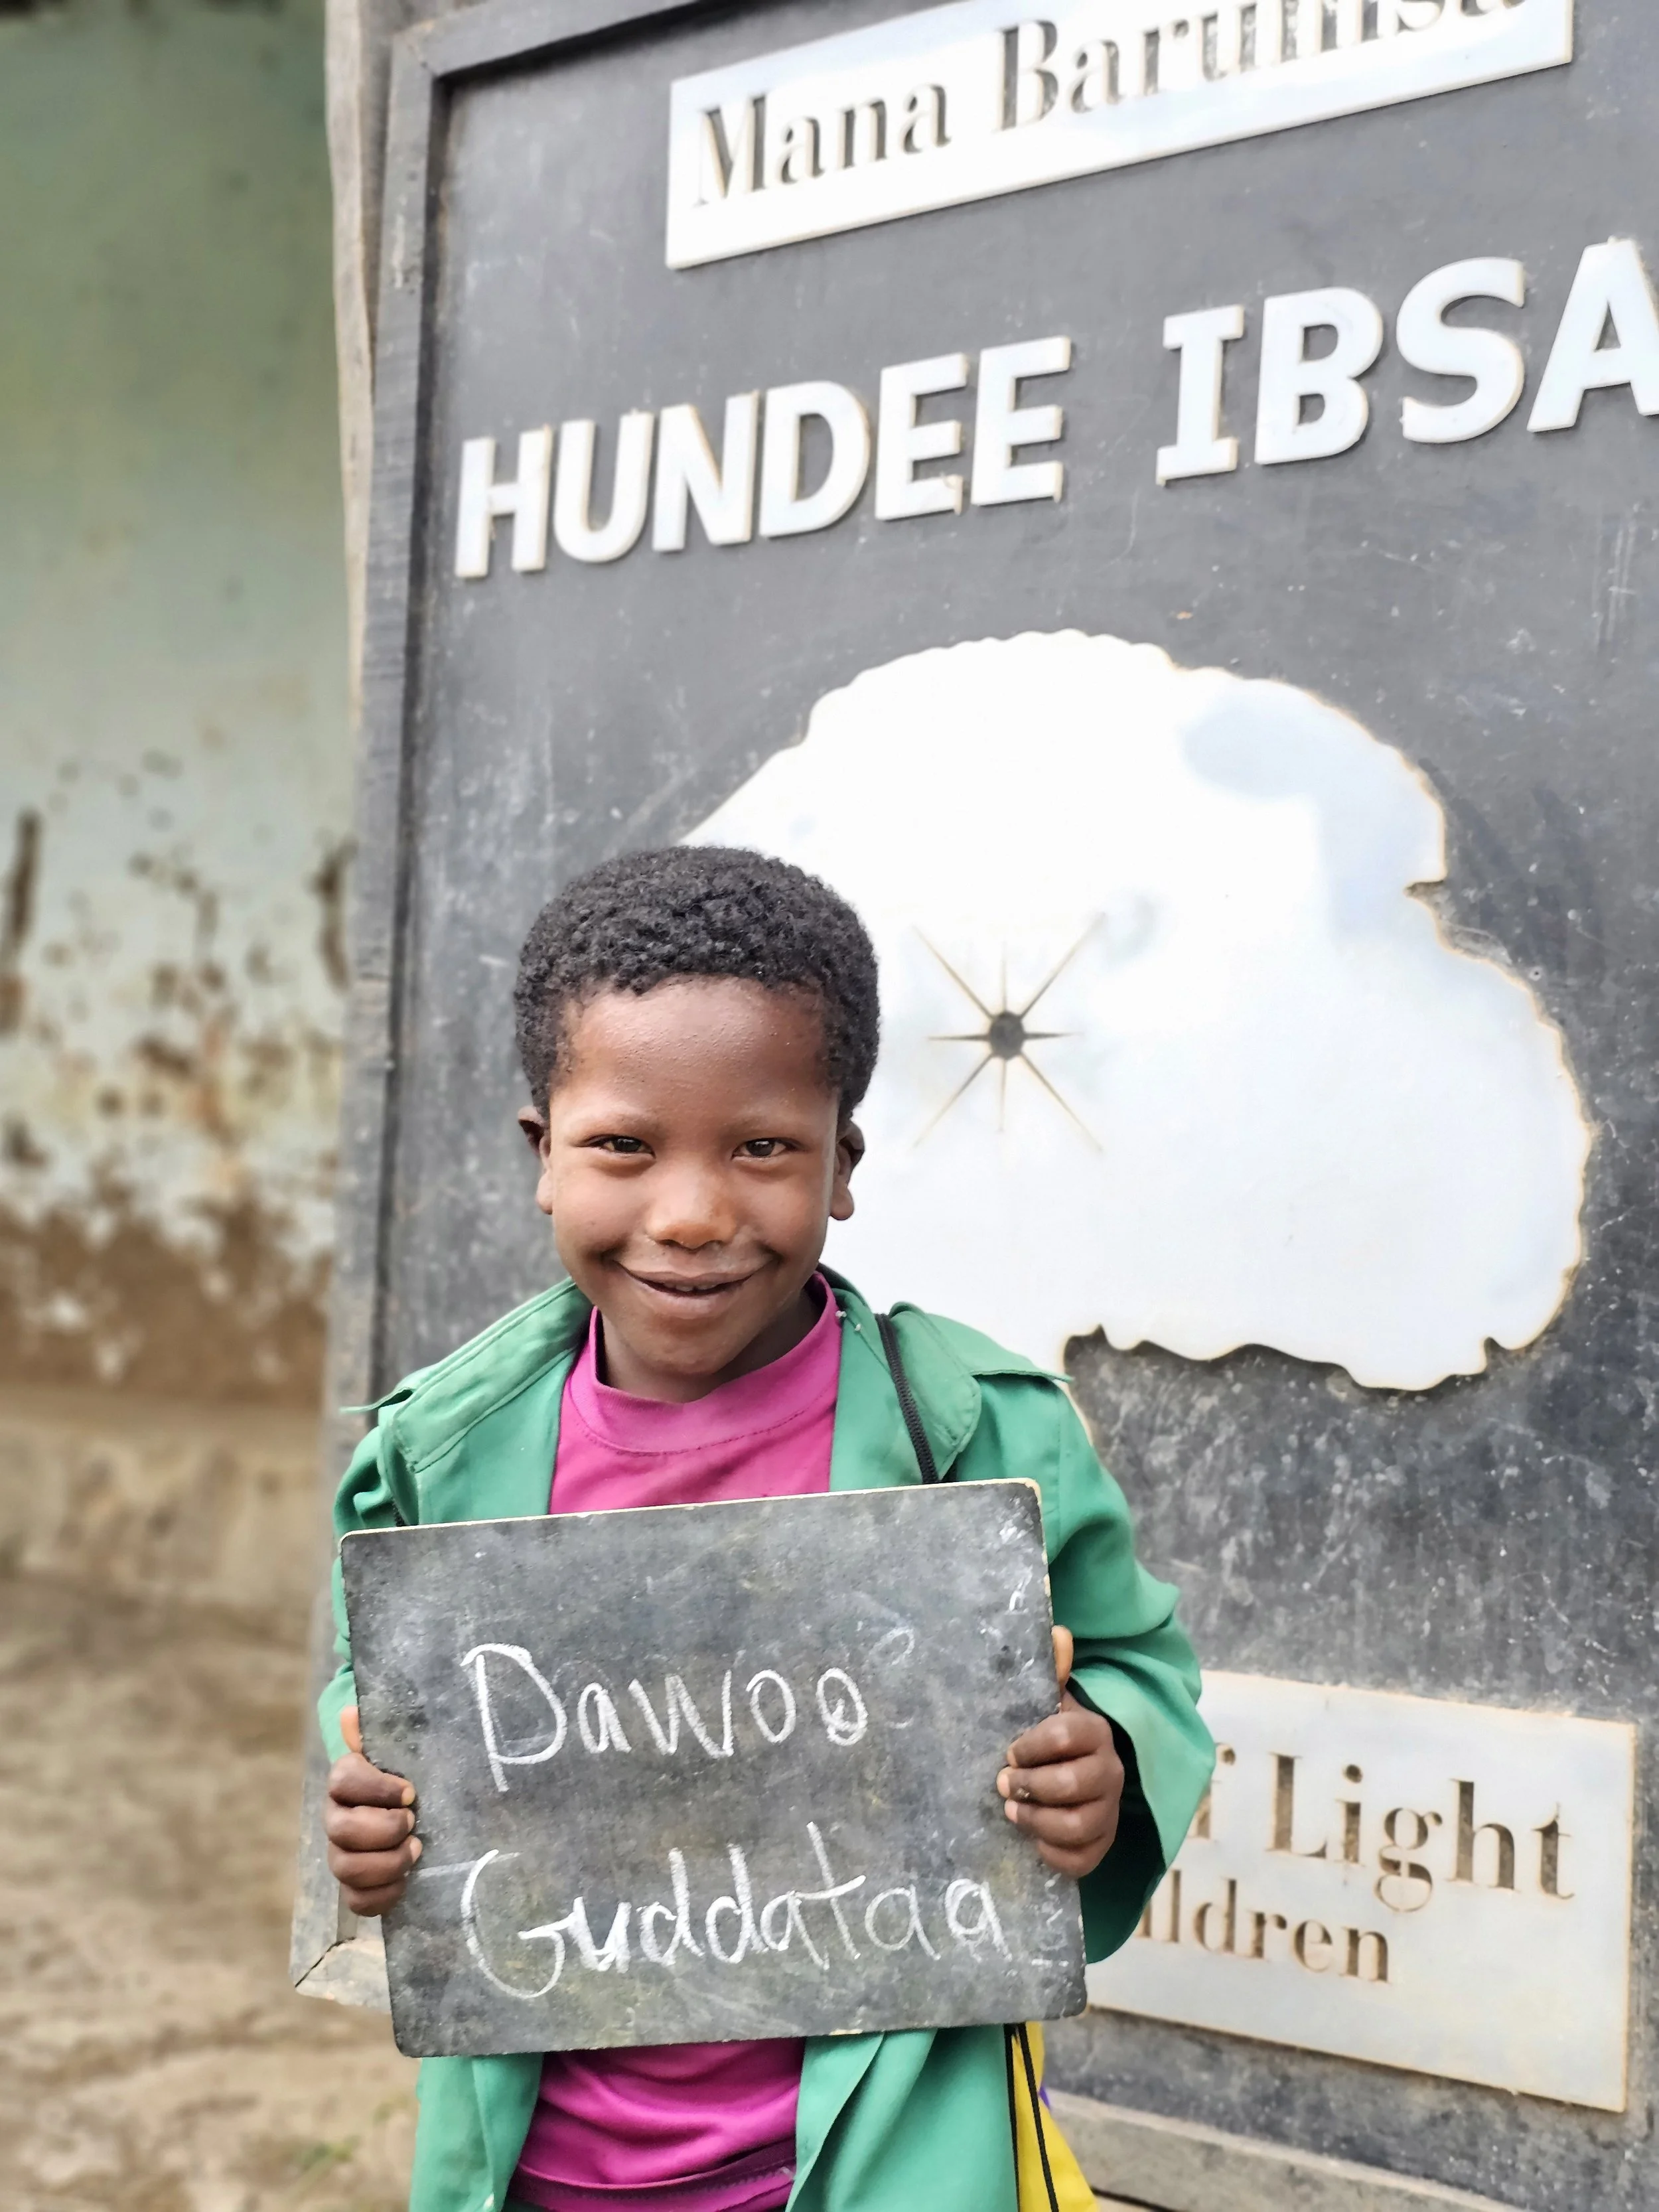 Mana Barumsa
HUNDEE IBSA
f Light
ildren
Dawoo
Guddataa